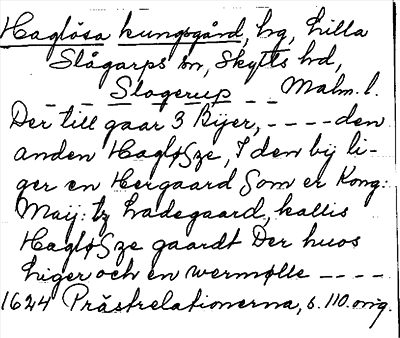 Haglösa kungsgård, by, Lilla
Slågarps sn, Skytts hd,
_ _ Slogerup _ _ Malm. l.
Der till gaar 3 Bÿer, _ _ _ _ den
anden HagløSze, J den bÿ li-
ger en Hergaard Som er Kong:
Maÿ: tz Ladegaard, kallis
HagløSze gaardt Der huos
liger och en wermølle _ _ _ _
1624 Prästrelationerna, s. 110. orig.